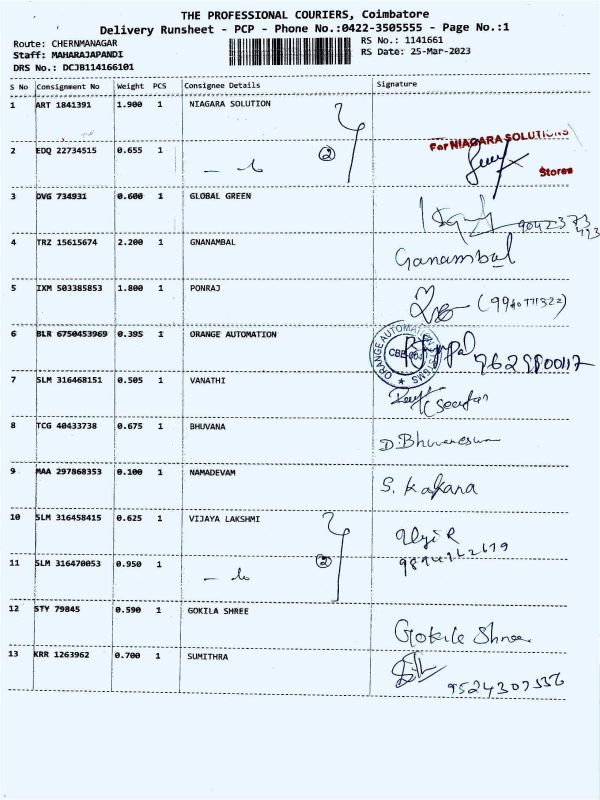 THE PROFESSIONAL COURIERS, Coimbatore
Delivery Runsheet - PCP - Phone No.:0422-3505555 - Page No.:1
Route: CHERNMANAGAR RS No.: 1141661
Staff: MAHARAJAPANDI RS Date: 25-Mar-2023
DRS No.: DCJB114166101
S No Consignment No Weight PCS Consignee Details Signature
1 ART 1841391 1.900 1 NIAGARA SOLUTION
For NIAGARA SOLUTIONS
2 EDQ 22734515 0.655 1 2
Stores
3 DVG 734931 0.600 1 GLOBAL GREEN
4 TRZ 15615674 2.200 1 GNANAMBAL Ganambal
5 IXM 503385853 1.800 1 PONRAJ
6 BLR 6750453969 0.395 1 ORANGE AUTOMATION ORANGE AUTOMATION SYSTEMS
7 SLM 316468151 0.505 1 VANATHI
8 TCG 40433738 0.675 1 BHUVANA
9 MAA 297868353 0.100 1 NAMADEVAM
10 SLM 316458415 0.625 1 VIJAYA LAKSHMI
11 SLM 316470053 0.950 1 2
12 STY 79845 0.590 1 GOKILA SHREE
13 KRR 1263962 0.700 1 SUMITHRA